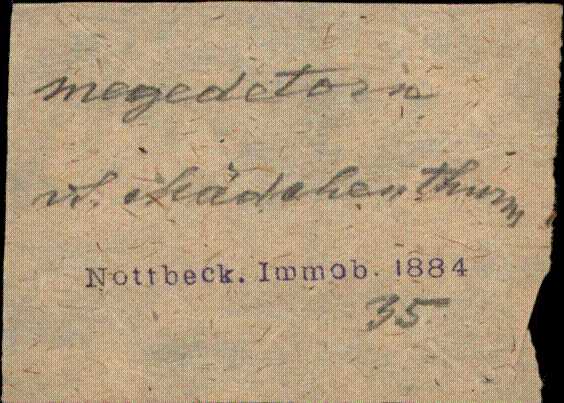 megedetorn
vt. Mädchenthurm
Nottbeck. Immob. 1884
35